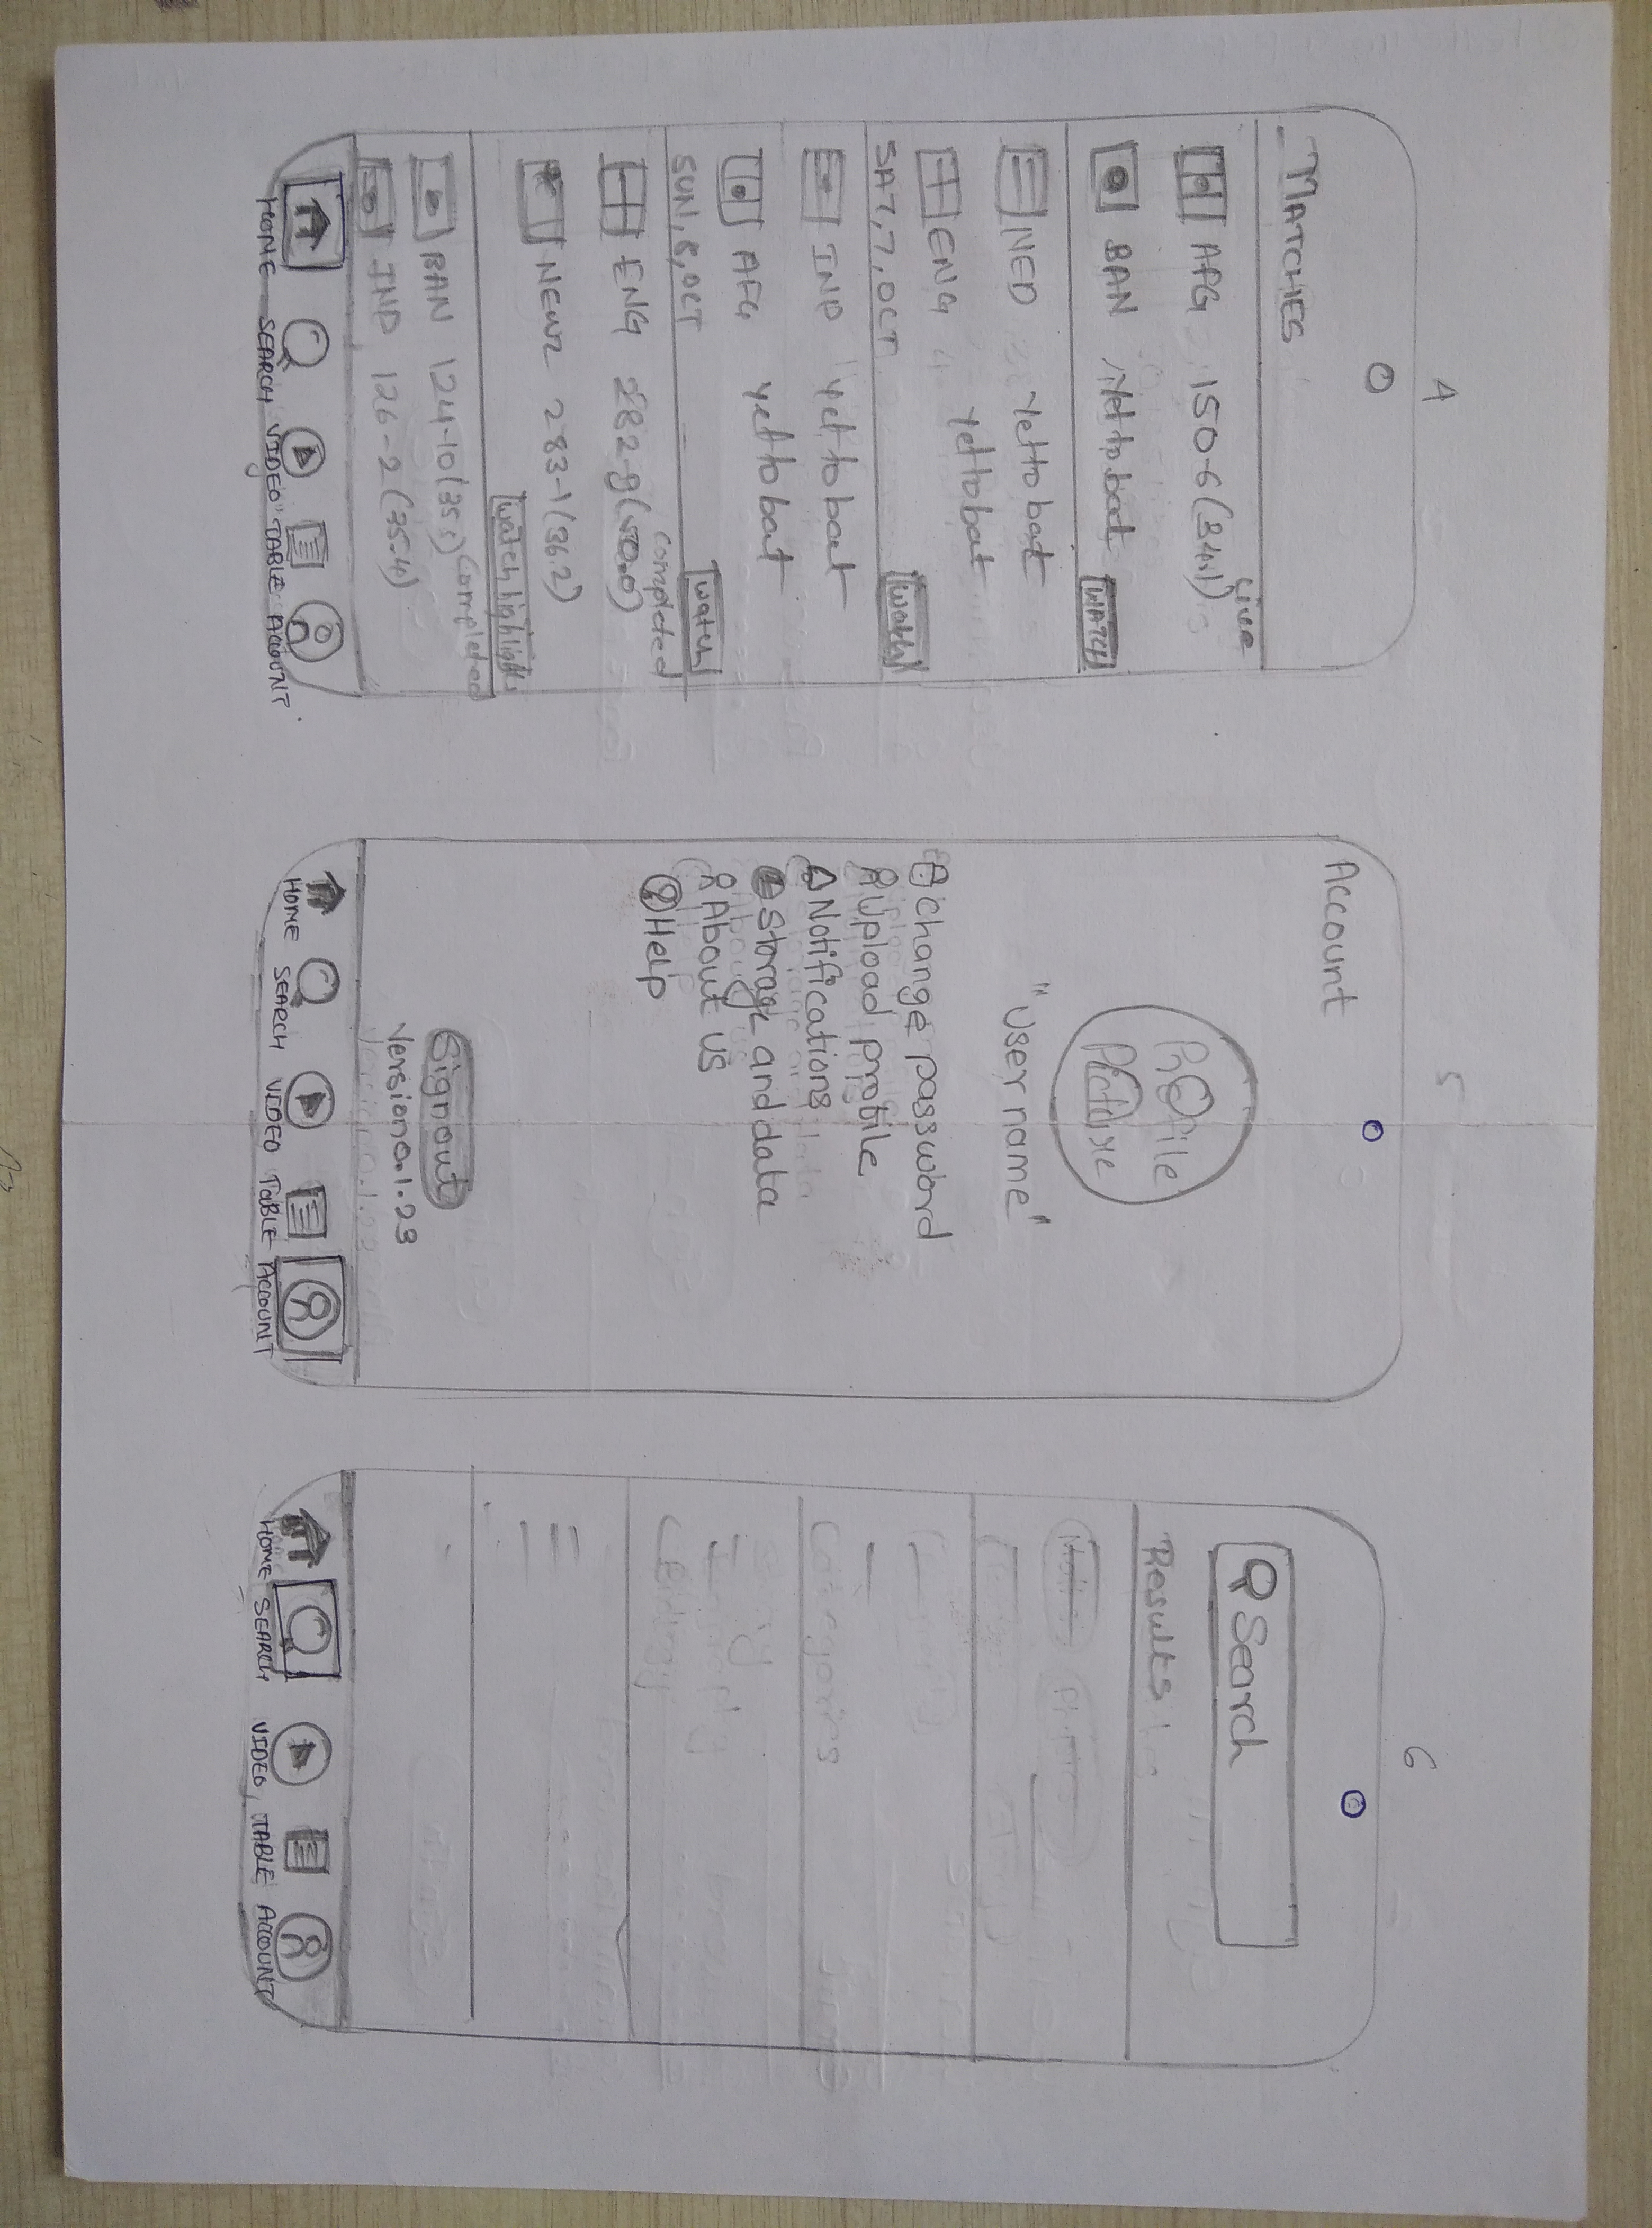 4
MATCHES
Live
AFG 150-6(34.1)
BAN Yet to bat
WATCH
NED Yet to bat
ENG Yet to bat
SAT,7,OCT
Watch
IND Yet to bat
AFG Yet to bat
SUN,8,OCT
Watch
Completed
ENG 282-9(50.0)
NEWZ 283-1(36.2)
Watch highlights
Completed
BAN 124-10(35.1)
IND 126-2(35.4)
HOME SEARCH VIDEO TABLE ACCOUNT
5
Account
Profile
Picture
"User name"
Change password
Upload profile
Notifications
Storage and data
About us
Help
Signout
Version0.1.23
HOME SEARCH VIDEO TABLE ACCOUNT
6
Search
Results
Categories
HOME SEARCH VIDEO, TABLE ACCOUNT